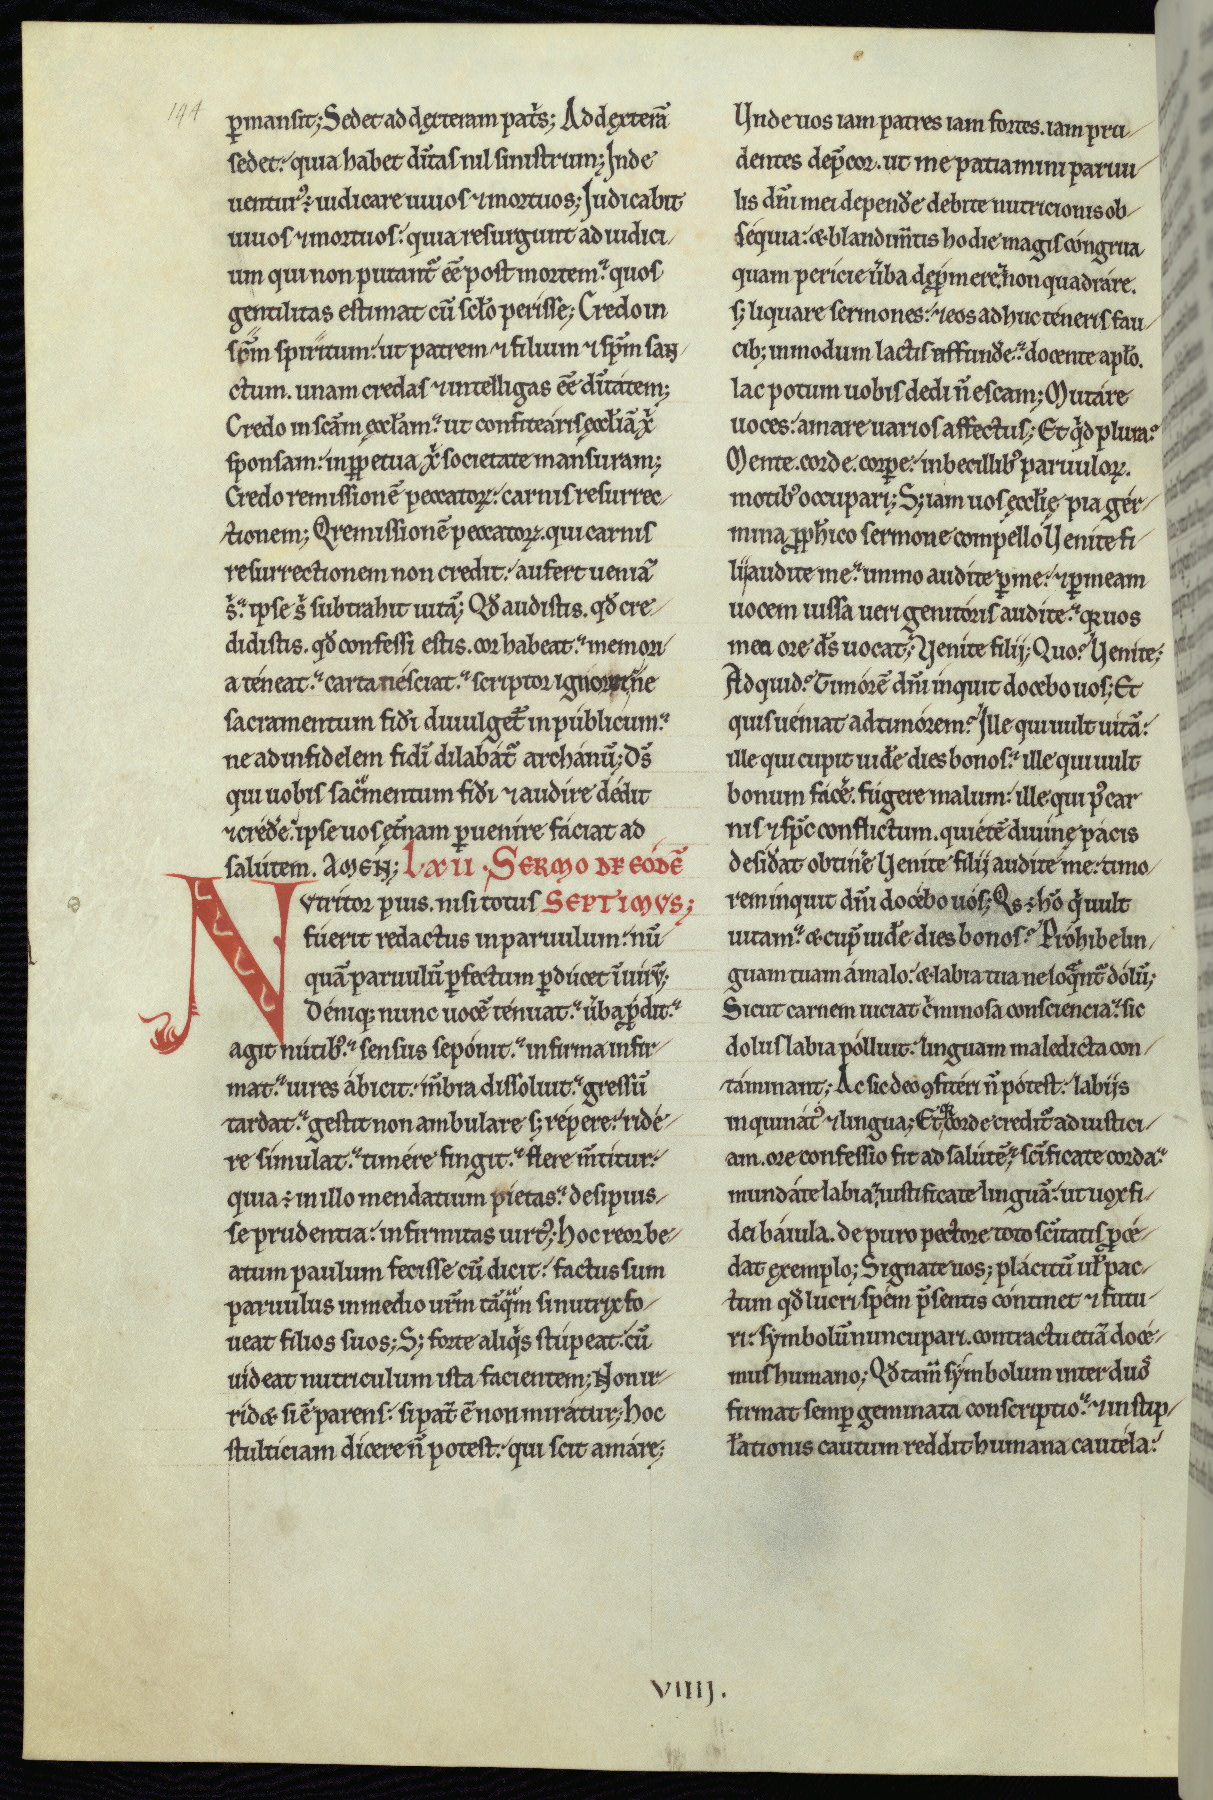 194
ꝑmansit; Sedet ad dęxteram pat̃s; Ad dęxterā
sedet: quia habet dũtas nil sinistrum; Inde
uentur᷒ ÷ iudicare uiuos ⁊ mortuos; Iudicabit
uiuos ⁊ mortuos: quia resurgunt ad iudici/
um qui non putant̃ eḗ post mortem: quos
gentilitas estimat cũ scło perisse; Credo in
sp̄m spiritum: ut patrem ⁊ filium ⁊ sp̄m san/
ctum. unam credas ⁊ intelligas eē dũtatem;
Credo in scām ęccłam: ut confitearis ęccłiā x̄
sponsam: in ꝑpetua x̄ societate mansuram;
Credo remissionē peccatoꝝ: carnis resurrec/
tionem; Q remissionē peccatoꝝ. qui carnis
resurrectionem non credit: aufert ueniā
s̃: ipse s̃ subtrahit uitā; Qđ audistis. qđ cre/
didistis. qđ confessi estis. cor habeat: memori/
a téneat: carta nésciat: scriptor ignoret: ne
sacramentum fiđi diuulget̃ in públicum:
ne ad infidelem fidī dilabát̃ archánũ; Ds̄
qui uobis sac̃mentum fiđi ⁊ audíre dédit
⁊ créđe: ipse uos ęt̃nam ꝑuenire fáciat ad
salútem. AMEN; LXII. SERMO DE EODĒ
SEPTIMVS;
Nvtritor pius. nisi totus
fúerit redactus in paruulum: nũ
quā paruulũ ꝑfectum ꝑdúcet ī uirũ;
Déniq; nunc uocē ténuat: ũba ꝑdit:
agit nútib᷒: sensus sepónit: infirma infir/
mat: uires ábicit: m̄bra dissoluit: gressũ
tardat: gestit non ambulare s; répere: ridé/
re símulat: timére fingit: flere m̄titur:
quia ÷ in illo mendatium pietas: desipuis/
se prudentia: infirmitas uirt᷒; Hoc reor be/
atum paulum fecisse cũ dicit: factus sum
paruulus in medio ur̄m tāq̃m si nutrix fo/
ueat filios suos; S; forte aliq̃s stúpeat: cũ
uídeat nutriculum ista facientem; Non ir/
ridæ si ē parens: si pat̃ ē non mirátur; Hoc
stulticiam dícere ñ potest: qui scit amáre;
Vnde uos iam patres iam fortes. iam pru/
dentes dep̃cor. ut me patiamini paruu/
lis dñi mei depenđe debite nutricionis ob/
séquia: & blandim̃tis hodie magis cóngrua
quam pericie ũba dep̃mere: non quadráre.
s; liquare sermones: ⁊ eos adhuc téneris fau/
cib; in modum lactis iffunđe: docente apło.
lac potum uobis dedi ñ escam; Mutáre
uoces: amare uarios affectus; Et qđ plura?
Mente. corde. corꝑe: inbecillib᷒ paruuloꝝ.
motib᷒ occupari; S; iam uos ęccłię pia gér/
mina ꝓph̃ico sermone compello Venite fi/
lij audite me: immo audite ꝑ me: ⁊ ꝑ meam
uocem iussa ueri genitóris audíte: q̃ uos
meo ore ds̄ uocat; Venite filij; Quo? Venite;
Ad quid? Timórē dñi inquit docebo uos; Et
quis uéniat ad timórem? Ille qui uult uitā:
ille qui cupit uiđe dies bonos: ille qui uult
bonum fácẽ. fúgere malum: ille qui p᷒ car
nis ⁊ sp̄c conflictum. quiétē diuine pácis
desiđat obtinẽ Venite filij audíte me: timo/
rem ínquit dñi docébo uós; Qs ÷ hō q̃ uult
uitam: & cup̃ uiđe dies bonos? Próhibe lin/
guam tuam á malo: & labia tua ne loq̃nt̃ dólũ;
Sicut carnem uiciat c̃minosa consciencia: sic
dolus labia pólluit: linguam maledicta con/
táminant; Ac sic deo ꝯfitéri ñ pótest: labijs
inquinát᷒ ⁊ lingua; Et q̃ corde credit̃ ad iustici/
am. ore confessio fit ad salútē: scīficate corda:
mundáte labia: iustificate linguā: ut uox fi/
dei báiula. de puro pectore toto scītatis ꝓcé/
dat ęxemplo; Signate uos; plácitũ uł pac/
tum qđ lucri spém p̄sentis cóntinet ⁊ futu/
ri: sýmbolũ nuncupari. contractu etiā docé/
mus humano; Qđ tam̄ sýmbolum inter duo᷒
firmat semꝑ geminata conscriptio: ⁊ in stip/
lationis cautum reddit humana cautéla:
VIIII.